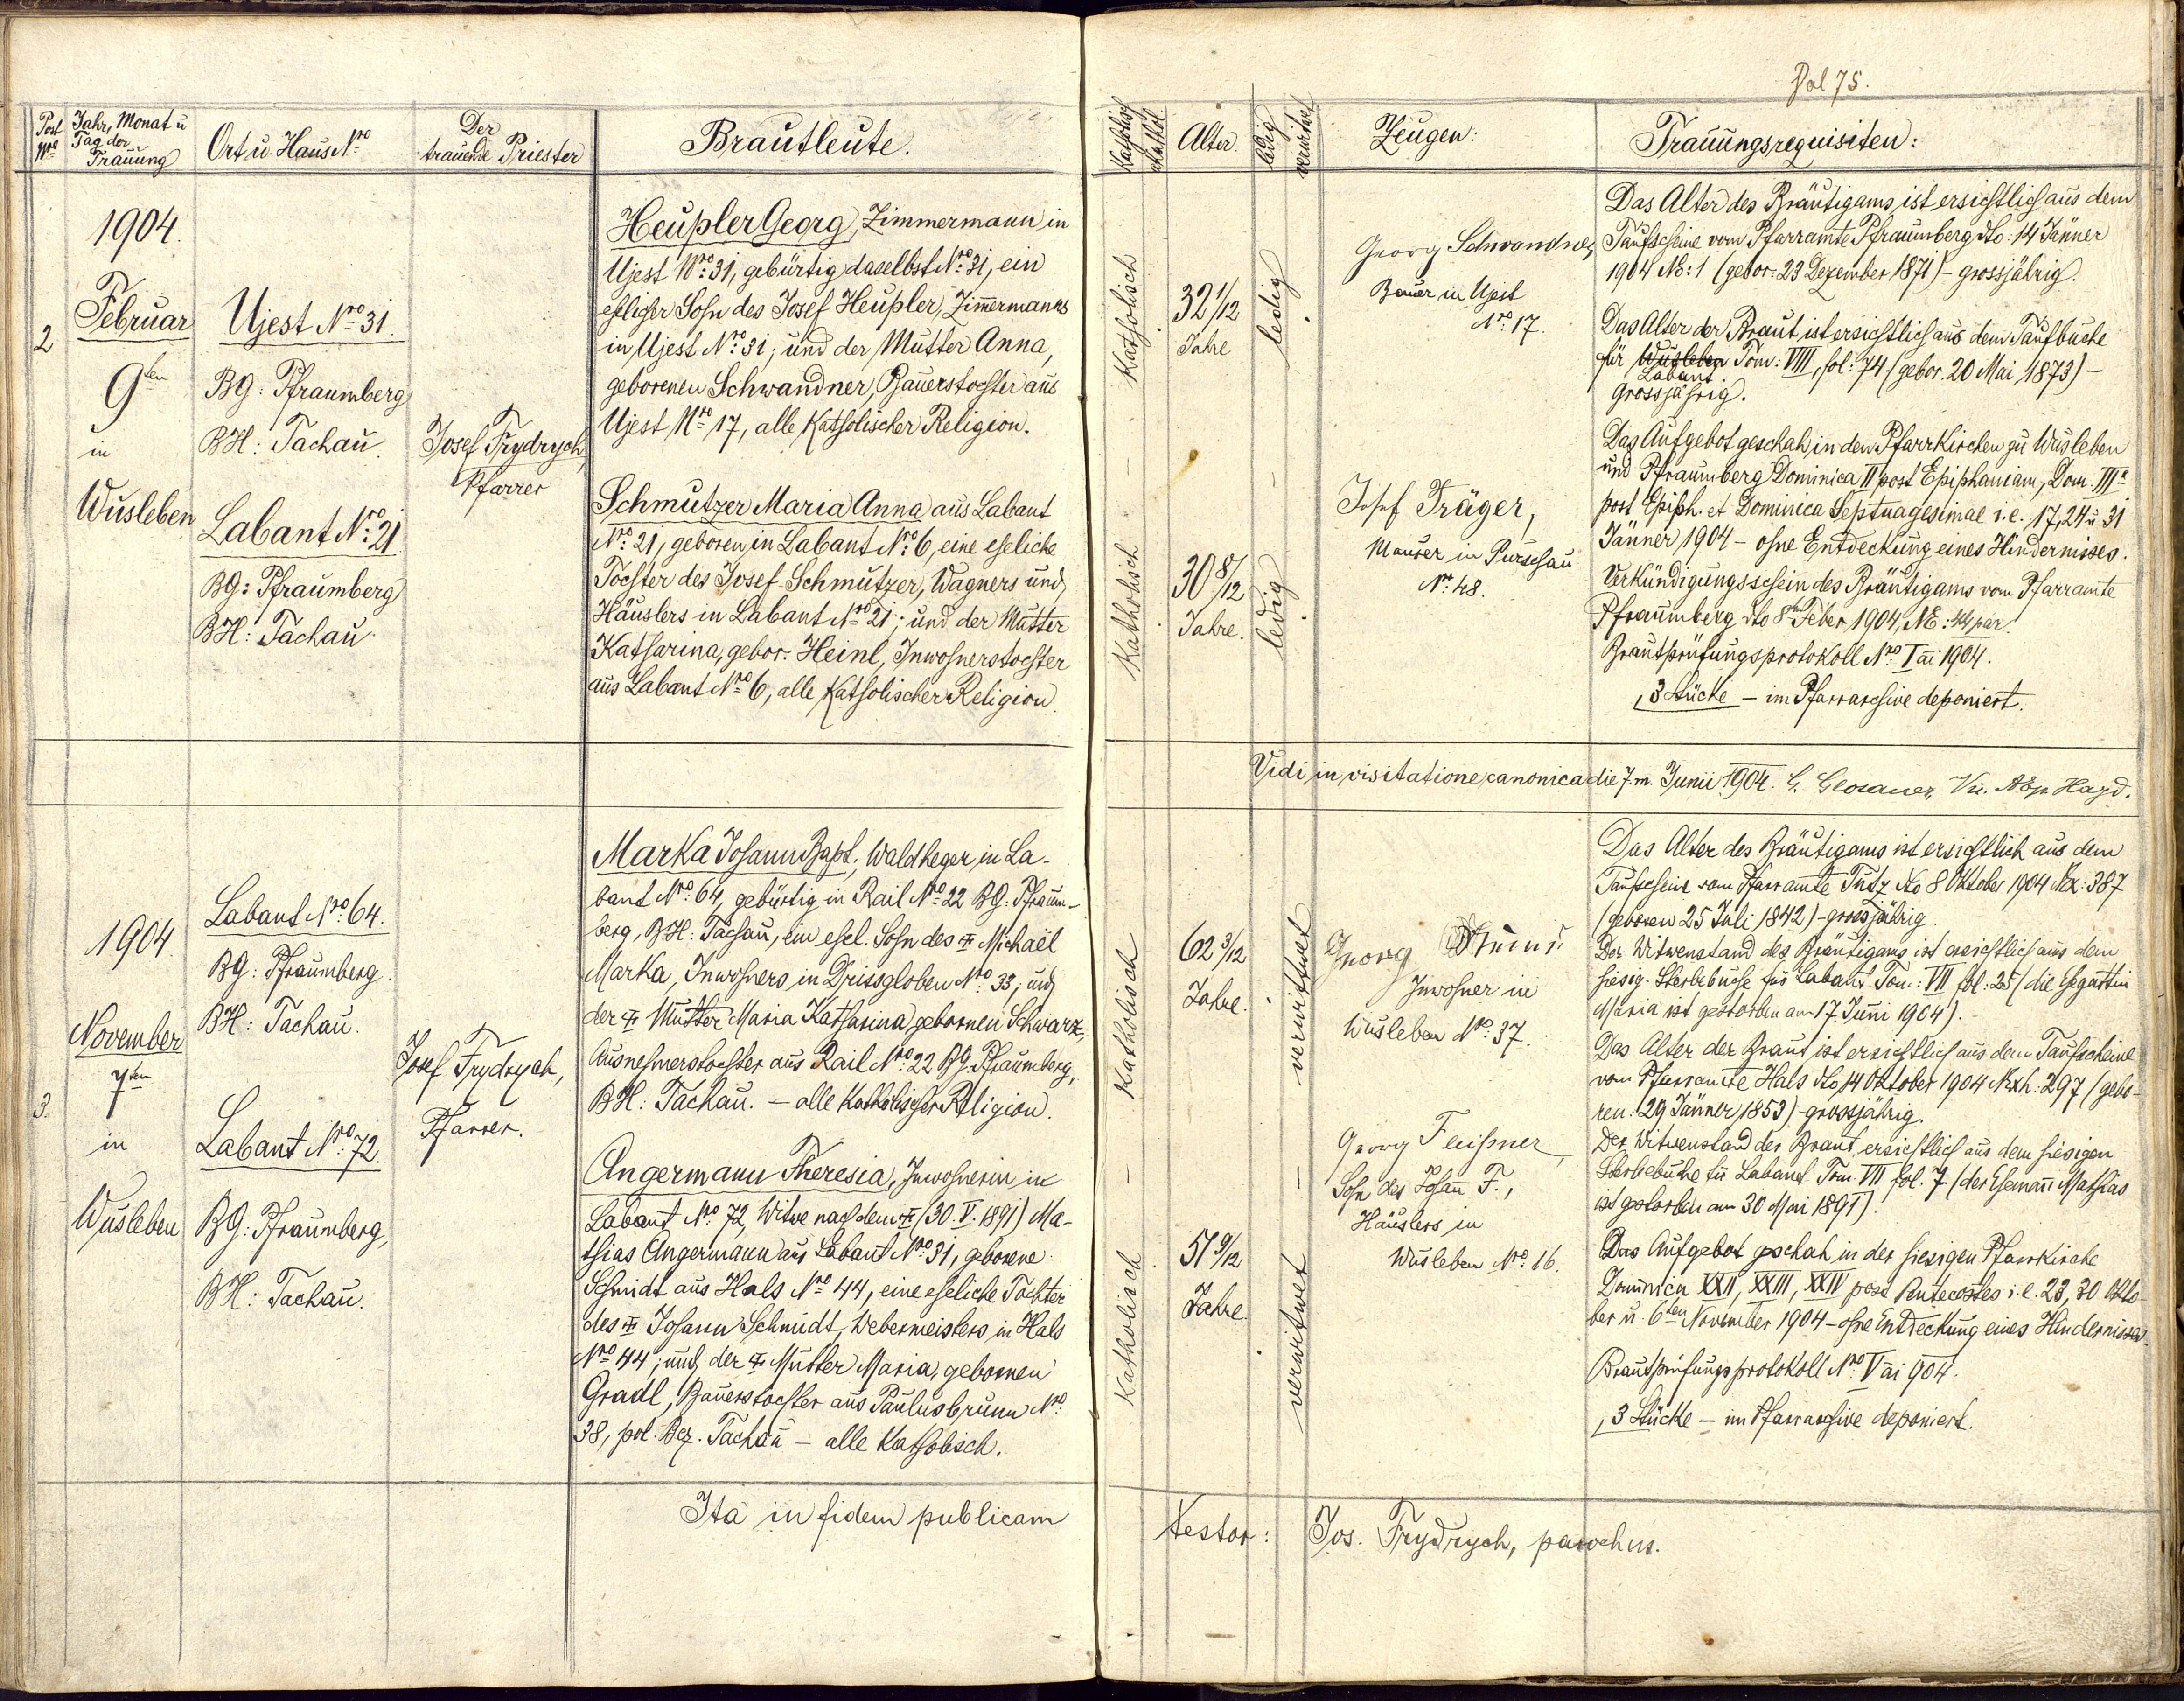 Fol 75.
Post Nro
Jahr, Monat u Tag der Trauung
Ort u. Haus Nro
Der trauende Priester
Brautleute.
Katholisch
akathol.
Alter.
ledig
verwitwet
Zeugen:
Trauungsrequisiten:
2
1904.
Februar
9ten
in
Wusleben
Ujest Nro 31.
BG: Pfraumberg
BH: Tachau.
Labant Nro 21
BG: Pfraumberg
BH: Tachau.
Josef Frydrych,
Pfarrer
Heupler Georg, Zimmermann in
Ujest Nro: 31, gebürtig daselbst Nro 31, ein
ehelicher Sohn des Josef Heupler, Zimmermanns
in Ujest Nro: 31; und der Mutter Anna,
geborenen Schwandner, Bauerstochter aus
Ujest Nro 17, alle katholischer Religion.
Schmutzer Maria Anna aus Labant
Nro: 21, geboren in Labant Nro: 6, eine eheliche
Tochter des Josef Schmutzer, Wagners und
Häuslers in Labant Nro 21; und der Mutter
Katharina, gebor. Heinl, Inwohnerstochter
aus Labant Nro 6, alle katholischer Religion.
Katholisch
32 1/12
Jahre
ledig
Georg Schwandner,
Bauer in Ujest
Nro 17.
Katholisch
30 8/12
Jahre.
ledig
Josef Träger,
Maurer in Purschau
Nr: 48.
Das Alter des Bräutigams ist ersichtlich aus dem
Taufscheine vom Pfarramte Pfraumberg dto. 14 Jänner
1904 NE: 1 (gebor: 23 Dezember 1871) - grossjährig.
Das Alter der Braut ist ersichtlich aus dem Taufbuche
für Wusleben Tom: VIII, fol: 74 (gebor. 20 Mai 1873) -
Labant.
grossjährig.
Das Aufgebot geschah in den Pfarrkirchen zu Wusleben
und Pfraumberg Dominica II post Epiphaniam, Dom. IIIa
post Epiph. et Dominica Septuagesimae i.e. 17, 24 u 31
Jänner 1904 - ohne Entdeckung eines Hindernisses.
Verkündigungsschein des Bräutigams vom Pfarramte
Pfraumberg dto 8ten Feber 1904, NE: 44 par.
Brautprüfungsprotokoll Nro I ai 1904.
3 Stücke - im Pfarrarchive deponiert.
Vidi in visitatione canonica die 7. m. Junii 1904. G. Glosauer,
3.
1904.
November
7ten
in
Wusleben
Labant Nro: 64.
BG: Pfraumberg.
BH: Tachau.
Labant Nro: 72.
BG: Pfraumberg,
BH: Tachau.
Josef Frydrych,
Pfarrer.
Marka Johann Bapt., Waldheger in La-
bant Nro: 64, gebürtig in Rail Nro 22 BG: Pfraum-
berg, BH: Tachau, ein ehel. Sohn des † Michaël
Marka, Inwohners in Drissgloben Nro: 33; und
der † Mutter Maria Katharina, gebornen Schwarz,
Ausnehmerstochter aus Rail Nro: 22 BG. Pfraumberg,
BH: Tachau. - alle katholischer Religion.
Angermann Theresia, Inwohnerin in
Labant Nro: 72, Witwe nach dem † (30 V. 1891) Ma-
thias Angermann aus Labant Nro 31, geborene
Schmidt aus Hals Nro 44, eine eheliche Tochter
des † Johann Schmidt, Webermeisters in Hals
Nro 44; und der † Mutter Maria, gebornen
Gradl, Bauerstochter aus Paulusbrunn Nro:
38, pol. Bez. Tachau - alle katholisch.
Katholisch
62 3/12
Jahre.
verwittwet
Georg
Inwohner in
Wusleben Nro. 37.
Katholisch
51 9/12
Jahre.
verwitwet
Georg Feissner,
Sohn des Johann F.,
Häuslers in
Wusleben Nro. 16.
Das Alter des Bräutigams ist ersichtlich aus dem
Taufschein vom Pfarramte Tutz dto 8 Oktober 1904 NE: 387
(geboren 25 Juli 1842) - grossjährig.
Der Witwenstand des Bräutigams ist ersichtlich aus dem
hiesig. Sterbebuche für Labant Tom: VII fol: 25 (die Ehegattin
Maria ist gestorben am 17 Juni 1904).
Das Alter der Braut ist ersichtlich aus dem Taufscheine
vom Pfarramte Hals dto 14 Oktober 1904 Nexh: 297 (gebo-
ren: 29 Jänner 1853) - grossjährig.
Der Witwenstand der Braut ersichtlich aus dem hiesigen
Sterbebuche für Labant Tom. VII fol. 7 (der Ehemann Mathias
ist gestorben am 30 Mai 1891).
Das Aufgebot geschah in der hiesigen Pfarrkirche
Dominica XXII, XXIII, XXIV post Pentecostes i.e. 23, 30 Okto-
ber u. 6ten November 1904 - ohne Entdeckung eines Hindernisses.
Brautprüfungsprotokoll Nro V ai 904.
3 Stücke - im Pfarrarchive deponiert.
Ita in fidem publicam
testor: Jos. Frydrych, parochus.